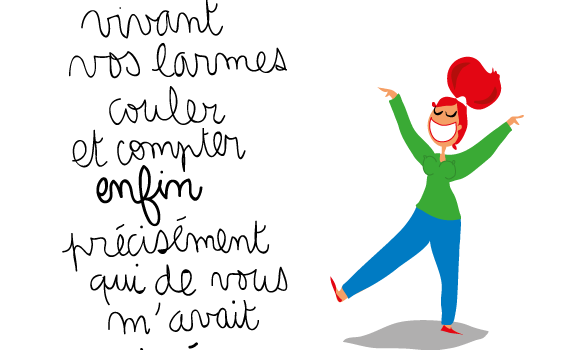 vivant
vos larmes
couler
et compter
enfin
précisément
qui de vous
m'avait